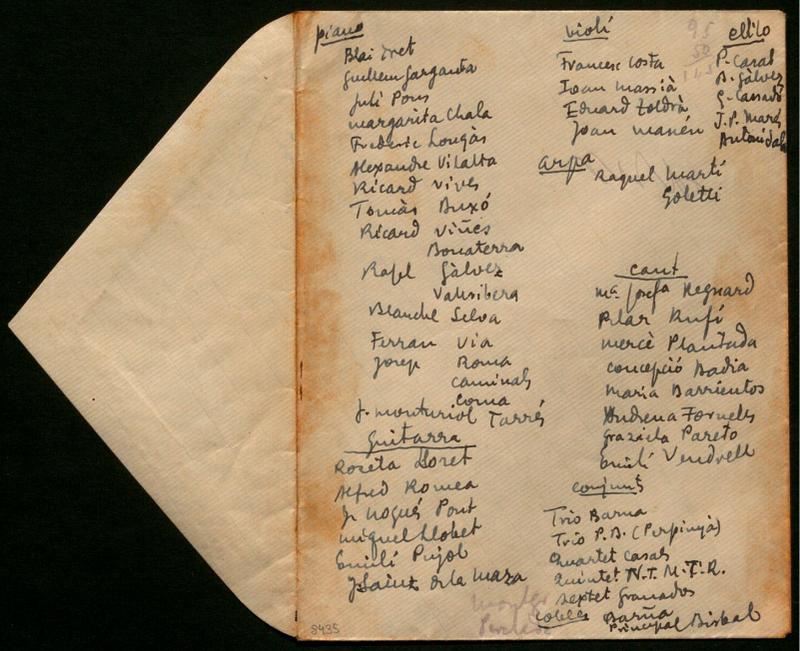 piano
Blai Net
Guillem Garganta
Juli Pons
margarita Chala
Frederic Longàs
Alexandre Vilalta
Ricard vives
Tomàs Buxó
Ricard Viñes
Bonaterra
Rafel Gàlvez
Vallribera
Blanche Selva
Ferran Via
Josep Roma
Caminals
Coma
J. monturiol Tarrés
Guitarra
Roseta Lloret
Alfred Romea
Jr nogués Pont
miquel Llobet
Emili Pujol
J Sainz de la Maza
violí
Francesc Costa
Joan massià
Eduard Toldrà
Joan manén
arpa
Raquel martí
Goletti
95
50
145
cello
P. Casal
B. Gàlvez
G. Cassadó
J. P. Marés
Antoni Sala
cant
mª Josefa Regnard
Pilar Rufí
mercè Plantada
concepció Badia
maria Barrientos
Andrena Fornells
Graziela Pareto
Emili Vendrell
conjunts
Trio Barna
Trio P.B. (Perpinyà)
Quartet Casals
Quintet N.T.M.T.R.
Septet Granados
cobles Barna
Principal Bisbal
8435